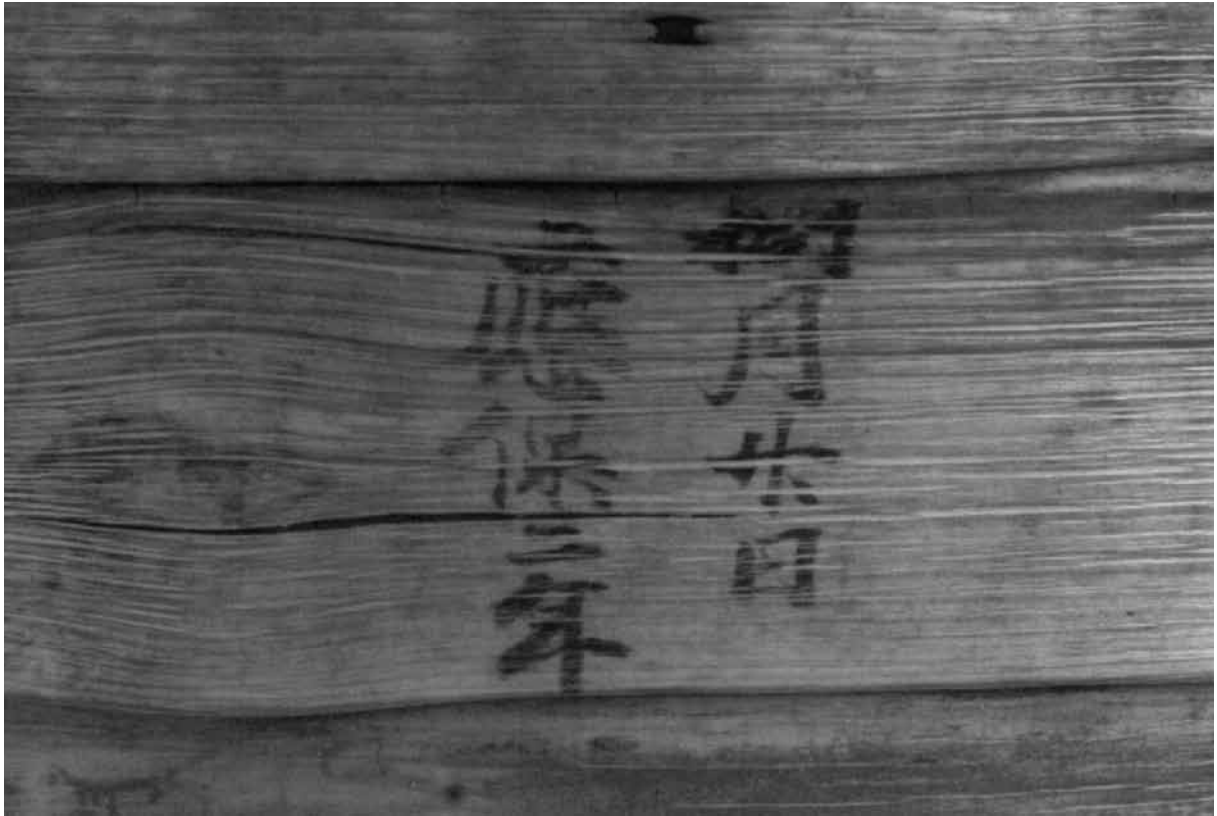 月廿日
應保二年